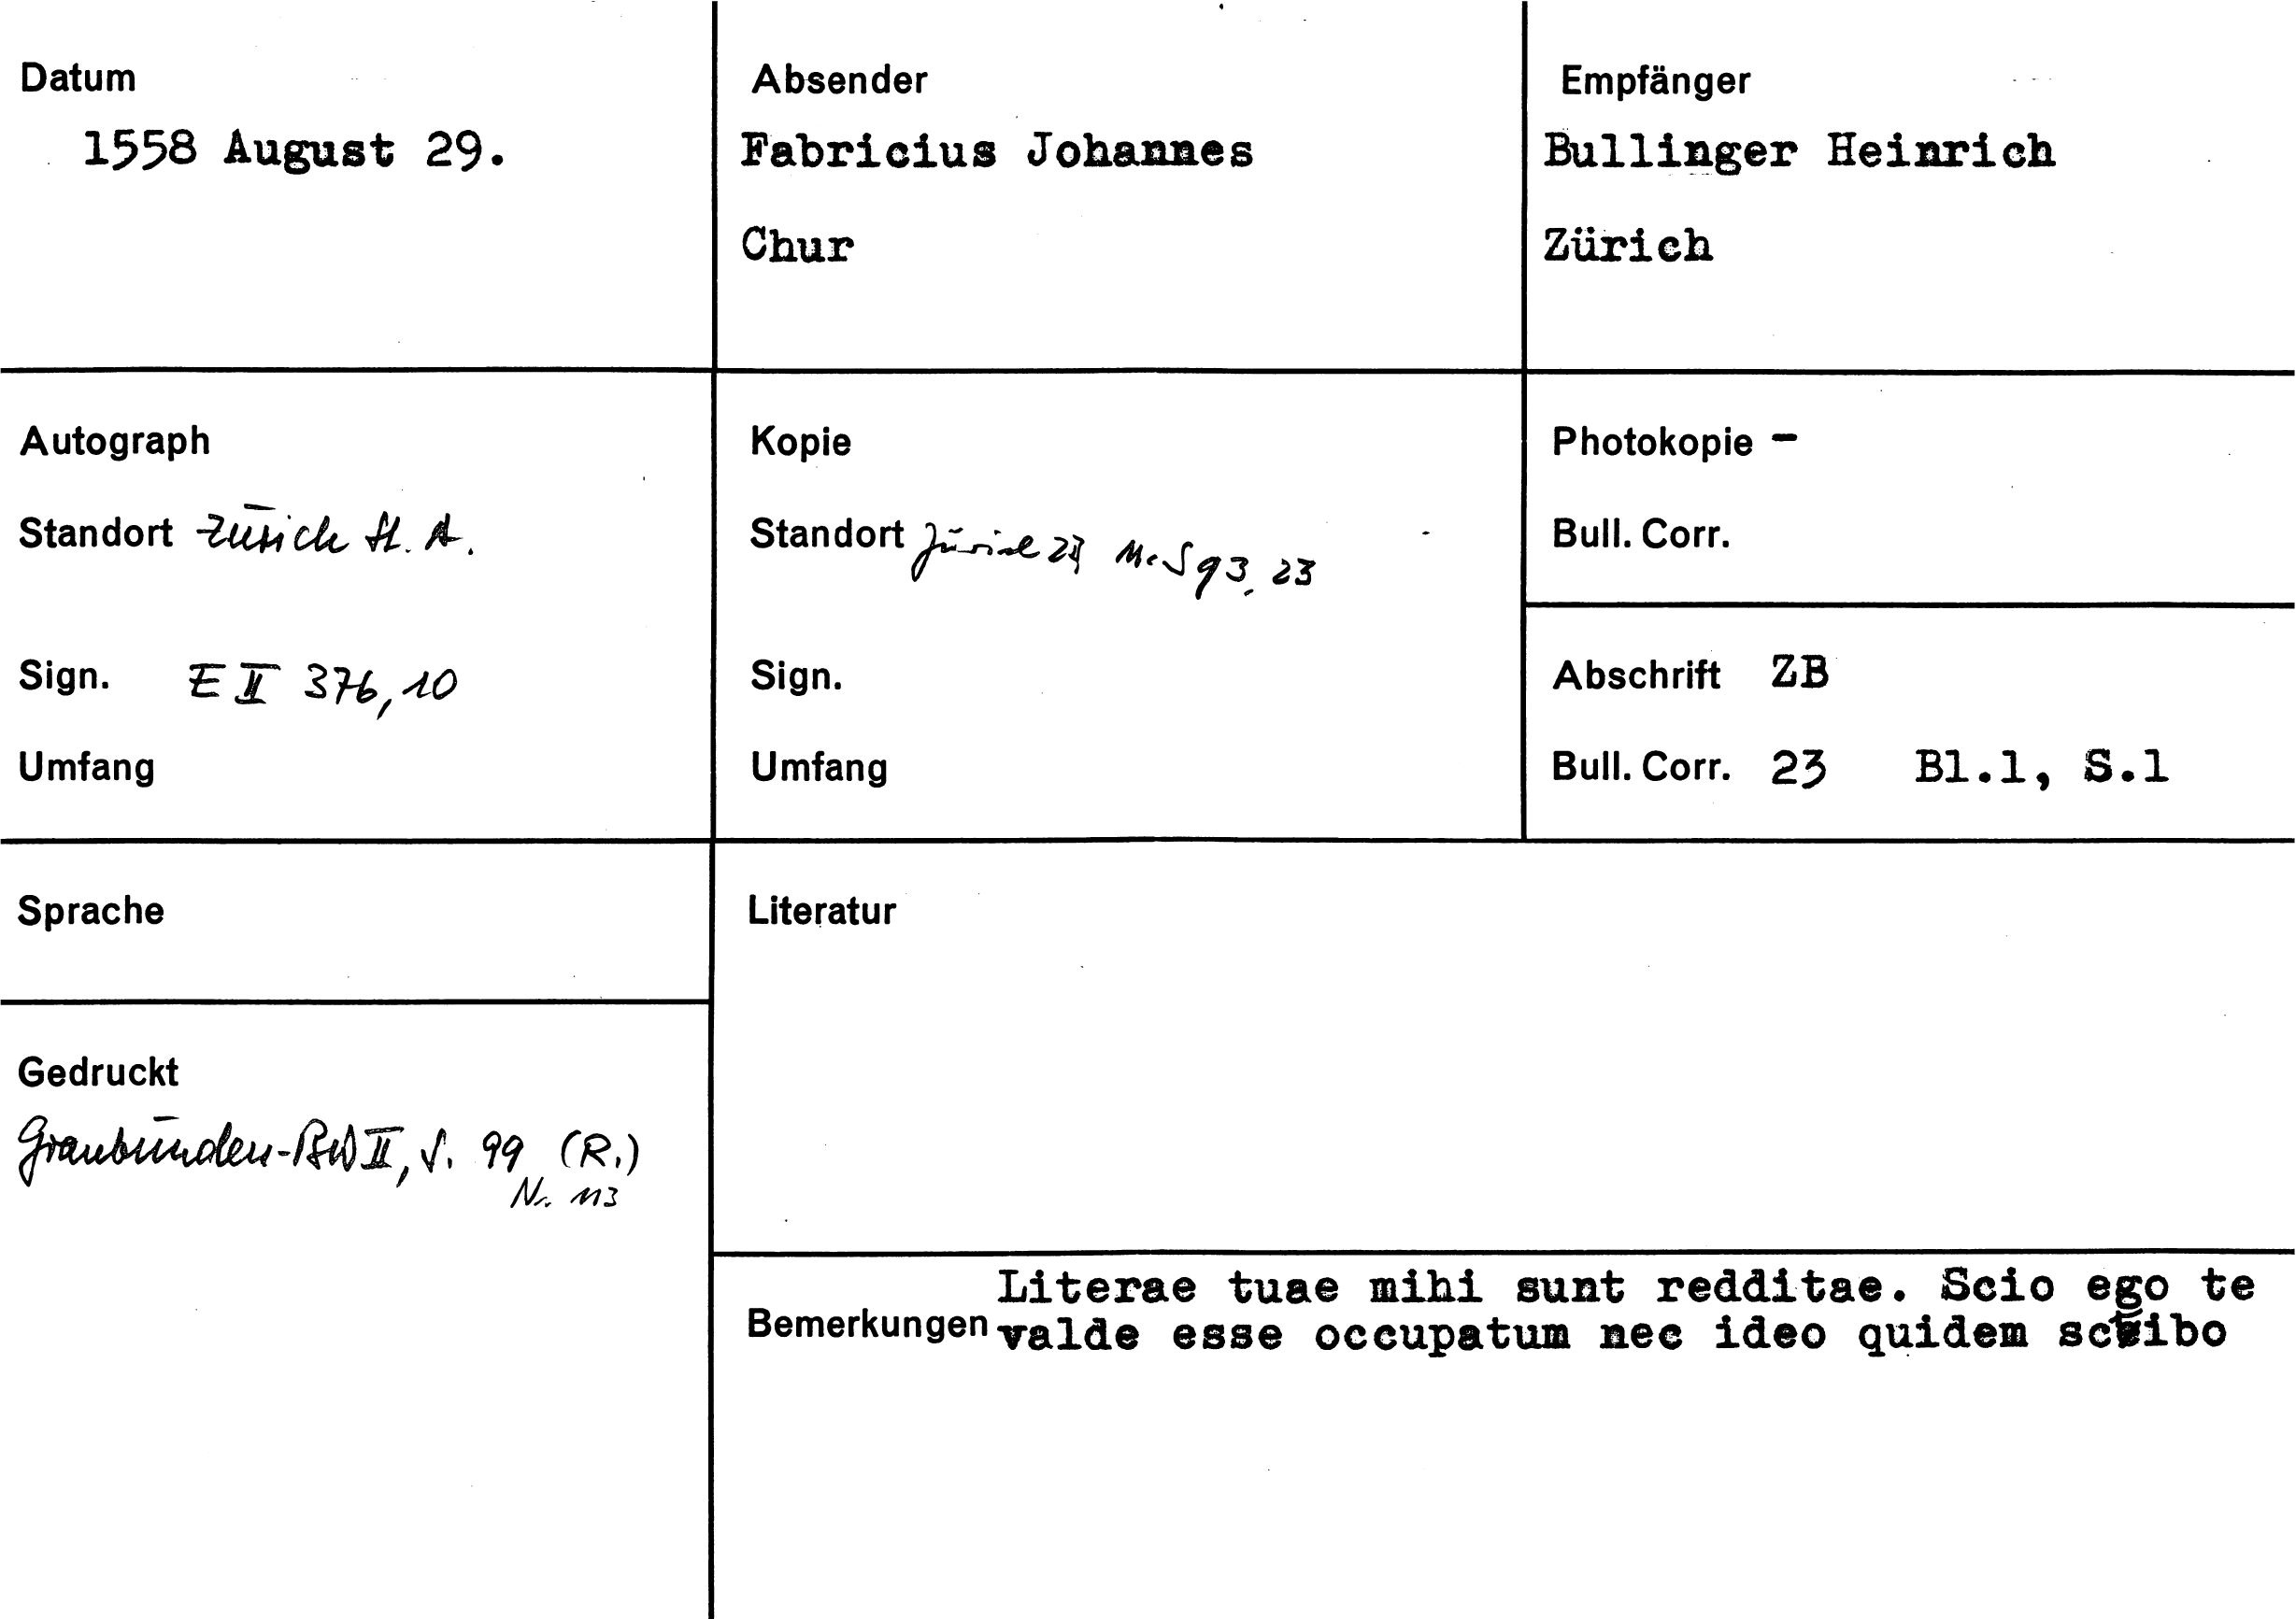 Datum
1558 August 29.
Absender
Fabricius Johannes
Chur
Empfänger
Bullinger Heinrich
Zürich
Autograph
Standort Zürich St. A.
Sign. E II 376, 10
Umfang
Kopie
Standort Zürich ZB Ms S 93, 23
Sign.
Umfang
Photokopie -
Bull. Corr.
Abschrift ZB
Bull. Corr. 23 Bl.1, S.1
Sprache
Gedruckt
Graubünden-BW II, S. 99 (R.)
Nr. 113
Literatur
Bemerkungen
Literae tuae mihi sunt redditae. Scio ego te
valde esse occupatum nec ideo quidem scribo